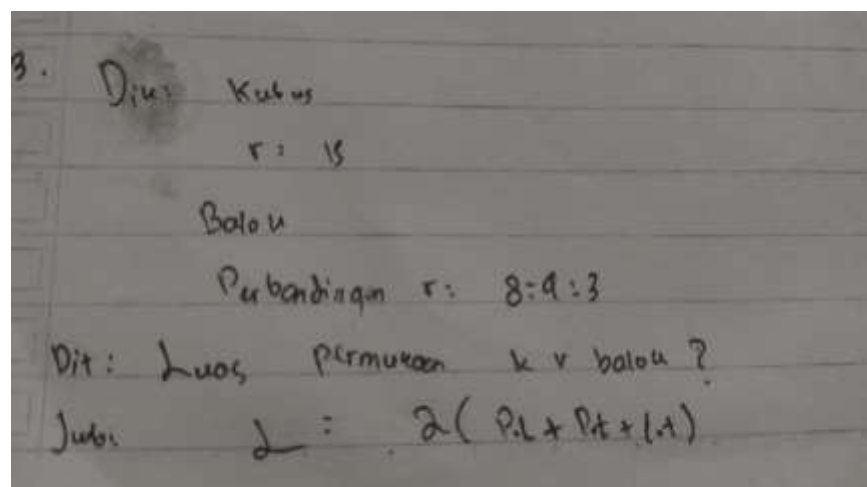 3. Dik: Kubus
r : 15
Balok
Perbandingan r : 8:4:3
Dit : Luas permukaan k v balok ?
Jwb: L = 2( P.l + P.t + l.t)